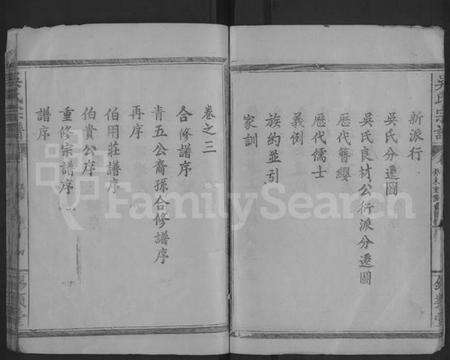 吳氏宗譜
新派行
吳氏分遷圖
吳氏良材公行派分遷圖
歷代簪纓
歷代儒士
義例
族約並引
家訓
卷之三
合修譜序
青五公裔孫合修譜序
再序
伯用莊譜序
伯貴公序
重修宗譜序
譜序
FamilySearch